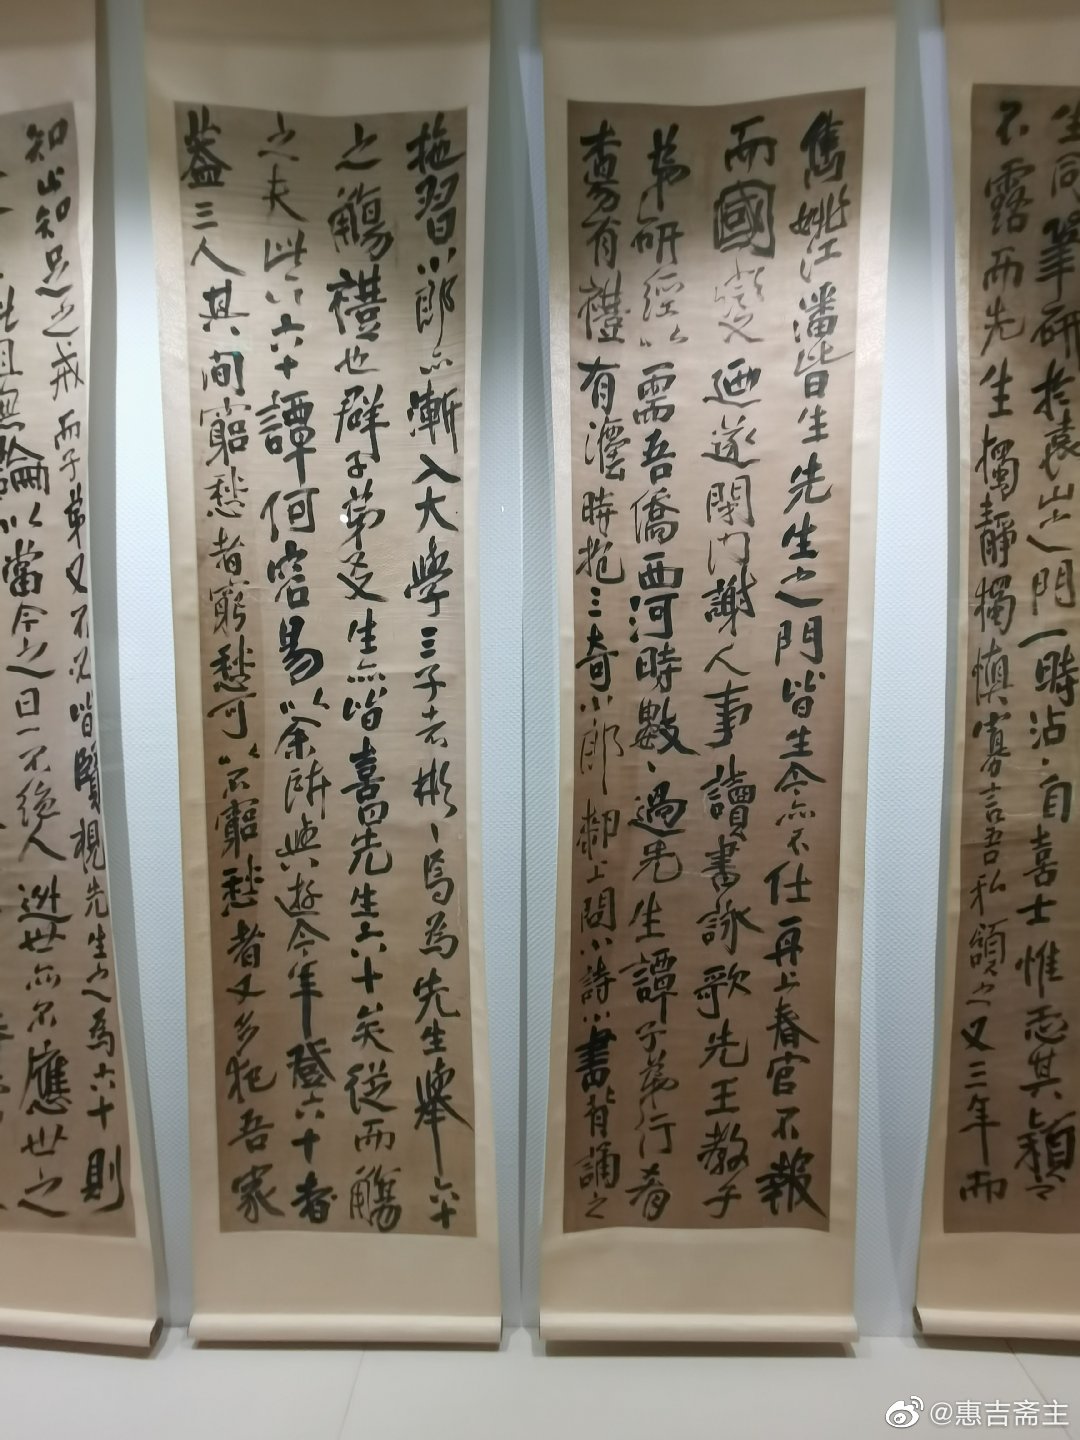 生同筆研於袁山之門一時沾沾自喜士惟恐其穎之
不露而先生獨靜獨慎寡言吾私頌之又三年而
雋姚江潘皆生先生之門皆生令亦不仕再上春官不報
而國變之迺遂閉門謝人事讀書詠歌先王教子
弟研經以需吾僑西河時數數過先生譚子弟行肴
有禮有法時抱三奇小郎膝上問小詩小書背誦之
施習小郎亦漸入大學三子者彬彬焉為先生舉六十
之觴禮也群子弟及生亦皆喜先生六十矣從而觴
之夫此六六十譚何容易以余所與遊今年登六十者
蓋三人其間窮愁者窮愁可以不窮愁者又多犯吾家
知止知足之戒而子弟又不必皆賢視先生之為六十則
且無論以當今之日一不絕人逃世亦不應世之
@惠吉斋主